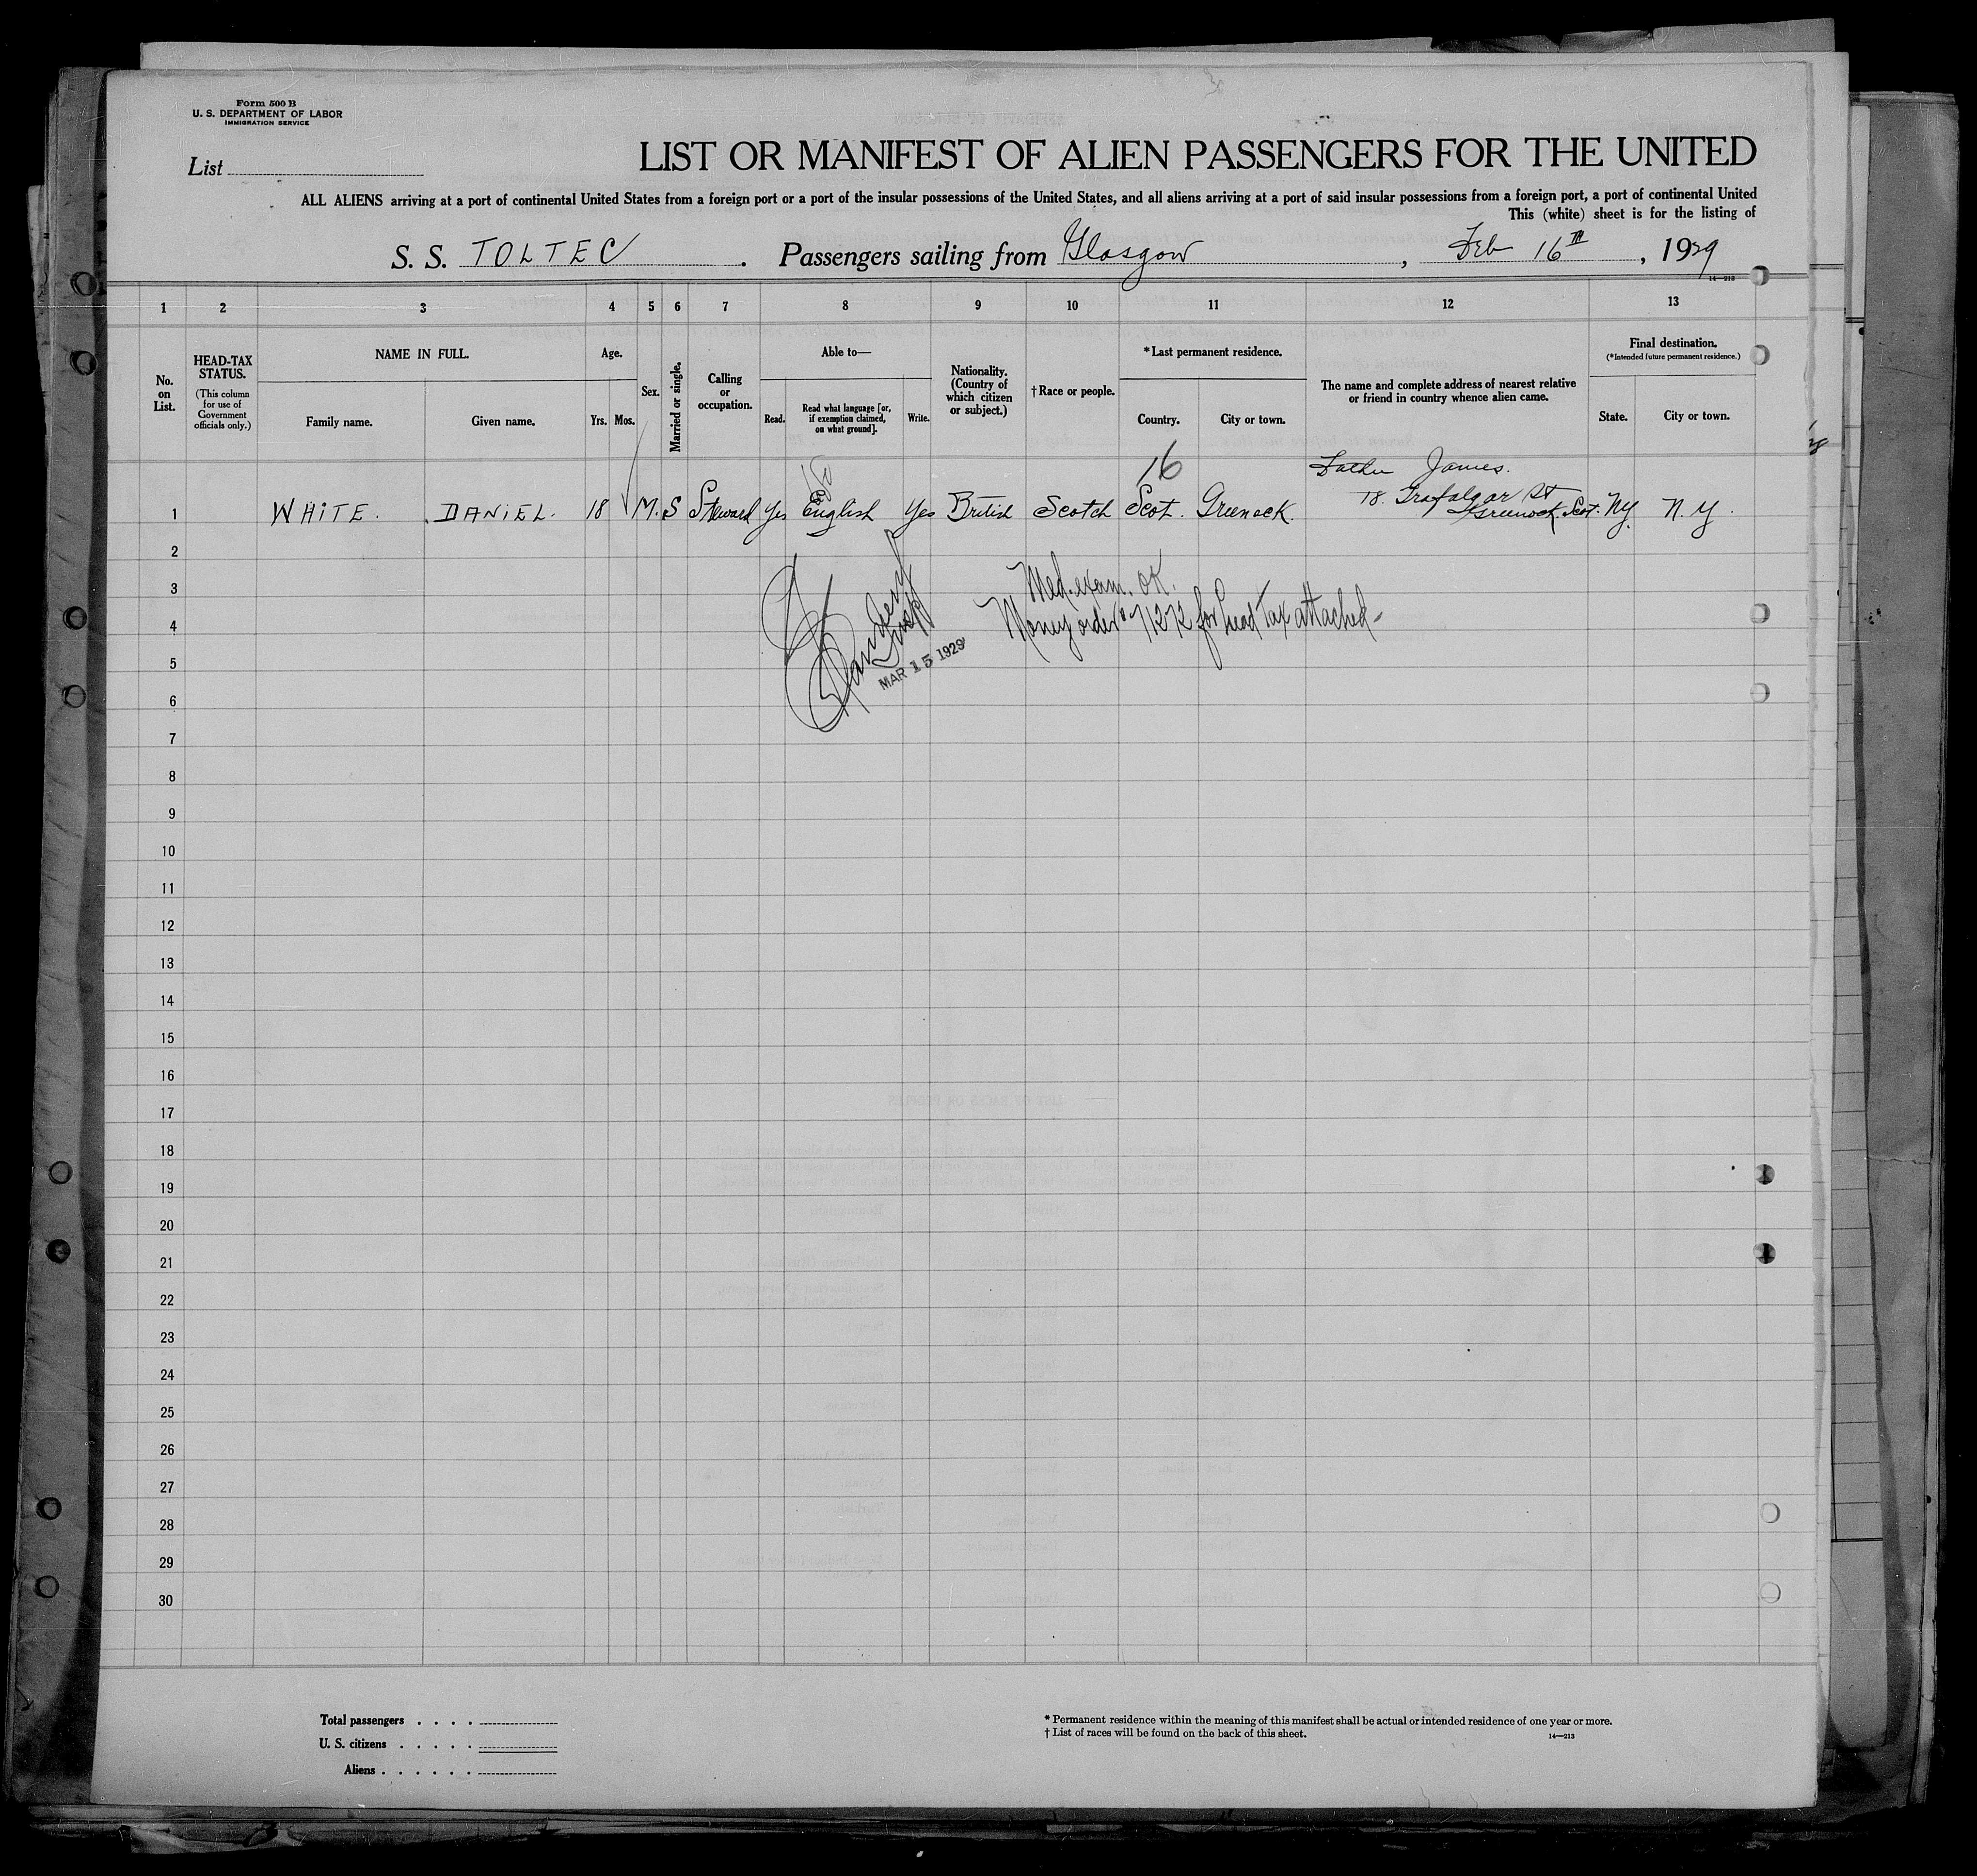 Form 500 B
U. S. DEPARTMENT OF LABOR
IMMIGRATION SERVICE
List
LIST OR MANIFEST OF ALIEN PASSENGERS FOR THE UNITED
ALL ALIENS arriving at a port of continental United States from a foreign port or a port of the insular possessions of the United States, and all aliens arriving at a port of said insular possessions from a foreign port, a port of continental United
This (white) sheet is for the listing of
S. S. TOLTEC . Passengers sailing from Glasgow , Feb 16TH , 1929
14—213
1 2 3 4 5 6 7 8 9 10 11 12 13
No. on List.
HEAD-TAX STATUS.
(This column for use of Government officials only.)
NAME IN FULL.
Family name. Given name.
Age.
Yrs. Mos.
Sex.
Married or single.
Calling or occupation.
Able to—
Read. Read what language [or, if exemption claimed, on what ground]. Write.
Nationality. (Country of which citizen or subject.)
† Race or people.
* Last permanent residence.
Country. City or town.
The name and complete address of nearest relative or friend in country whence alien came.
Final destination.
(* Intended future permanent residence.)
State. City or town.
16
Father James.
18. Trafalgar St
1 WHITE. DANIEL. 18 M. S Steward Yes English Yes British Scotch Scot. Greenock. Greenock. Scot. NY. N.Y.
2
Med. exam. OK.
3
Money order 71272 for head tax attached
4
5
MAR 15 1929
6
7
8
9
10
11
12
13
14
15
16
17
18
19
20
21
22
23
24
25
26
27
28
29
30
Total passengers . . . .
U. S. citizens . . . . .
Aliens . . . . . .
* Permanent residence within the meaning of this manifest shall be actual or intended residence of one year or more.
† List of races will be found on the back of this sheet.
14—213